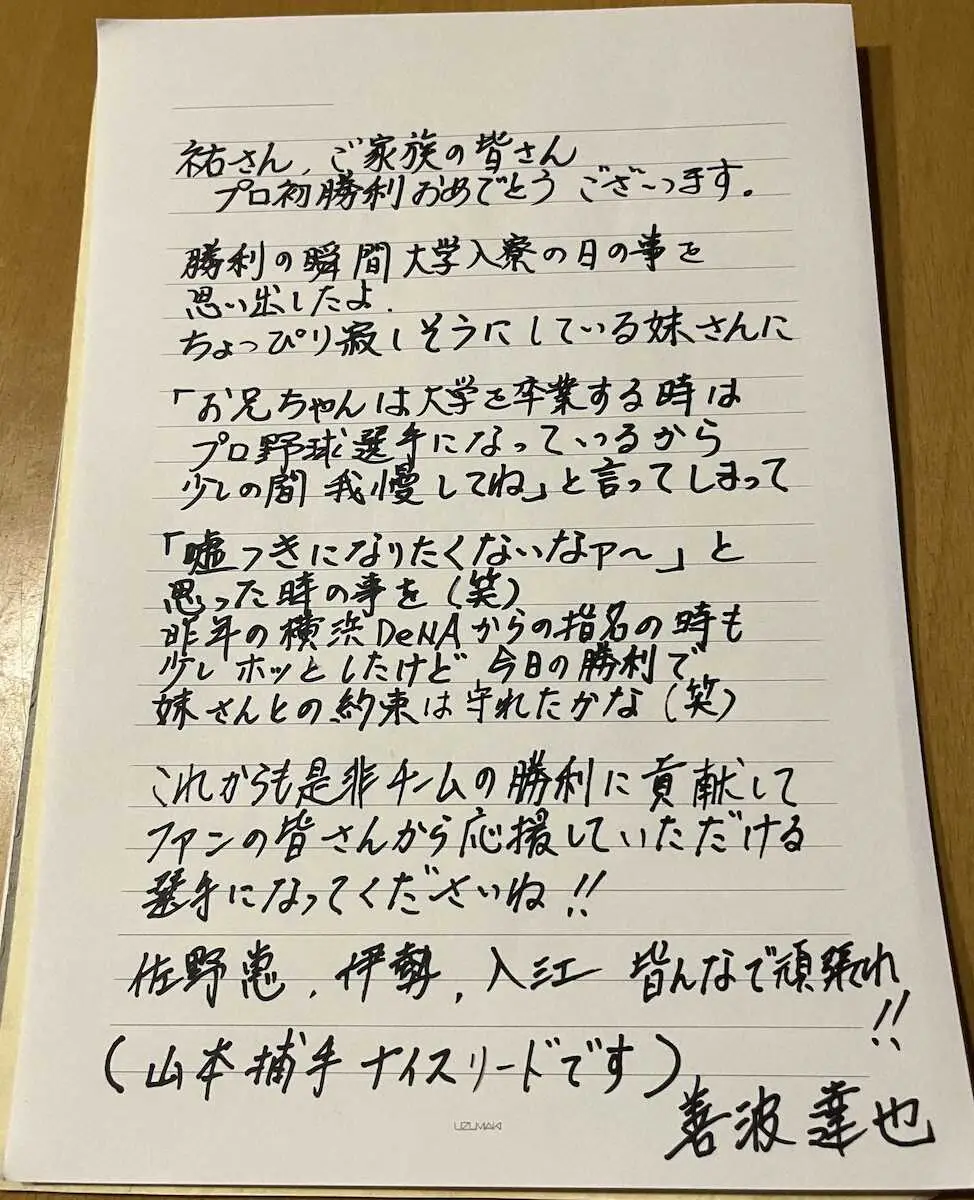 祐さん、ご家族の皆さん
プロ初勝利おめでとうございます。
勝利の瞬間大学入寮の日の事を
思い出したよ.
ちょっぴり寂しそうにしている妹さんに
「お兄ちゃんは大学を卒業する時は
プロ野球選手になっているから
少しの間我慢してね」と言ってしまって
「嘘つきになりたくないなァ〜」と
思った時の事を(笑)
昨年の横浜DeNAからの指名の時も
少しホッとしたけど 今日の勝利で
妹さんとの約束は守れたかな(笑)
これからも是非チームの勝利に貢献して
ファンの皆さんから応援していただける
選手になってくださいね!!
佐野恵、伊勢、入江 皆んなで頑張れ
!!
(山本捕手ナイスリードです)
善波達也
UZUMAKI